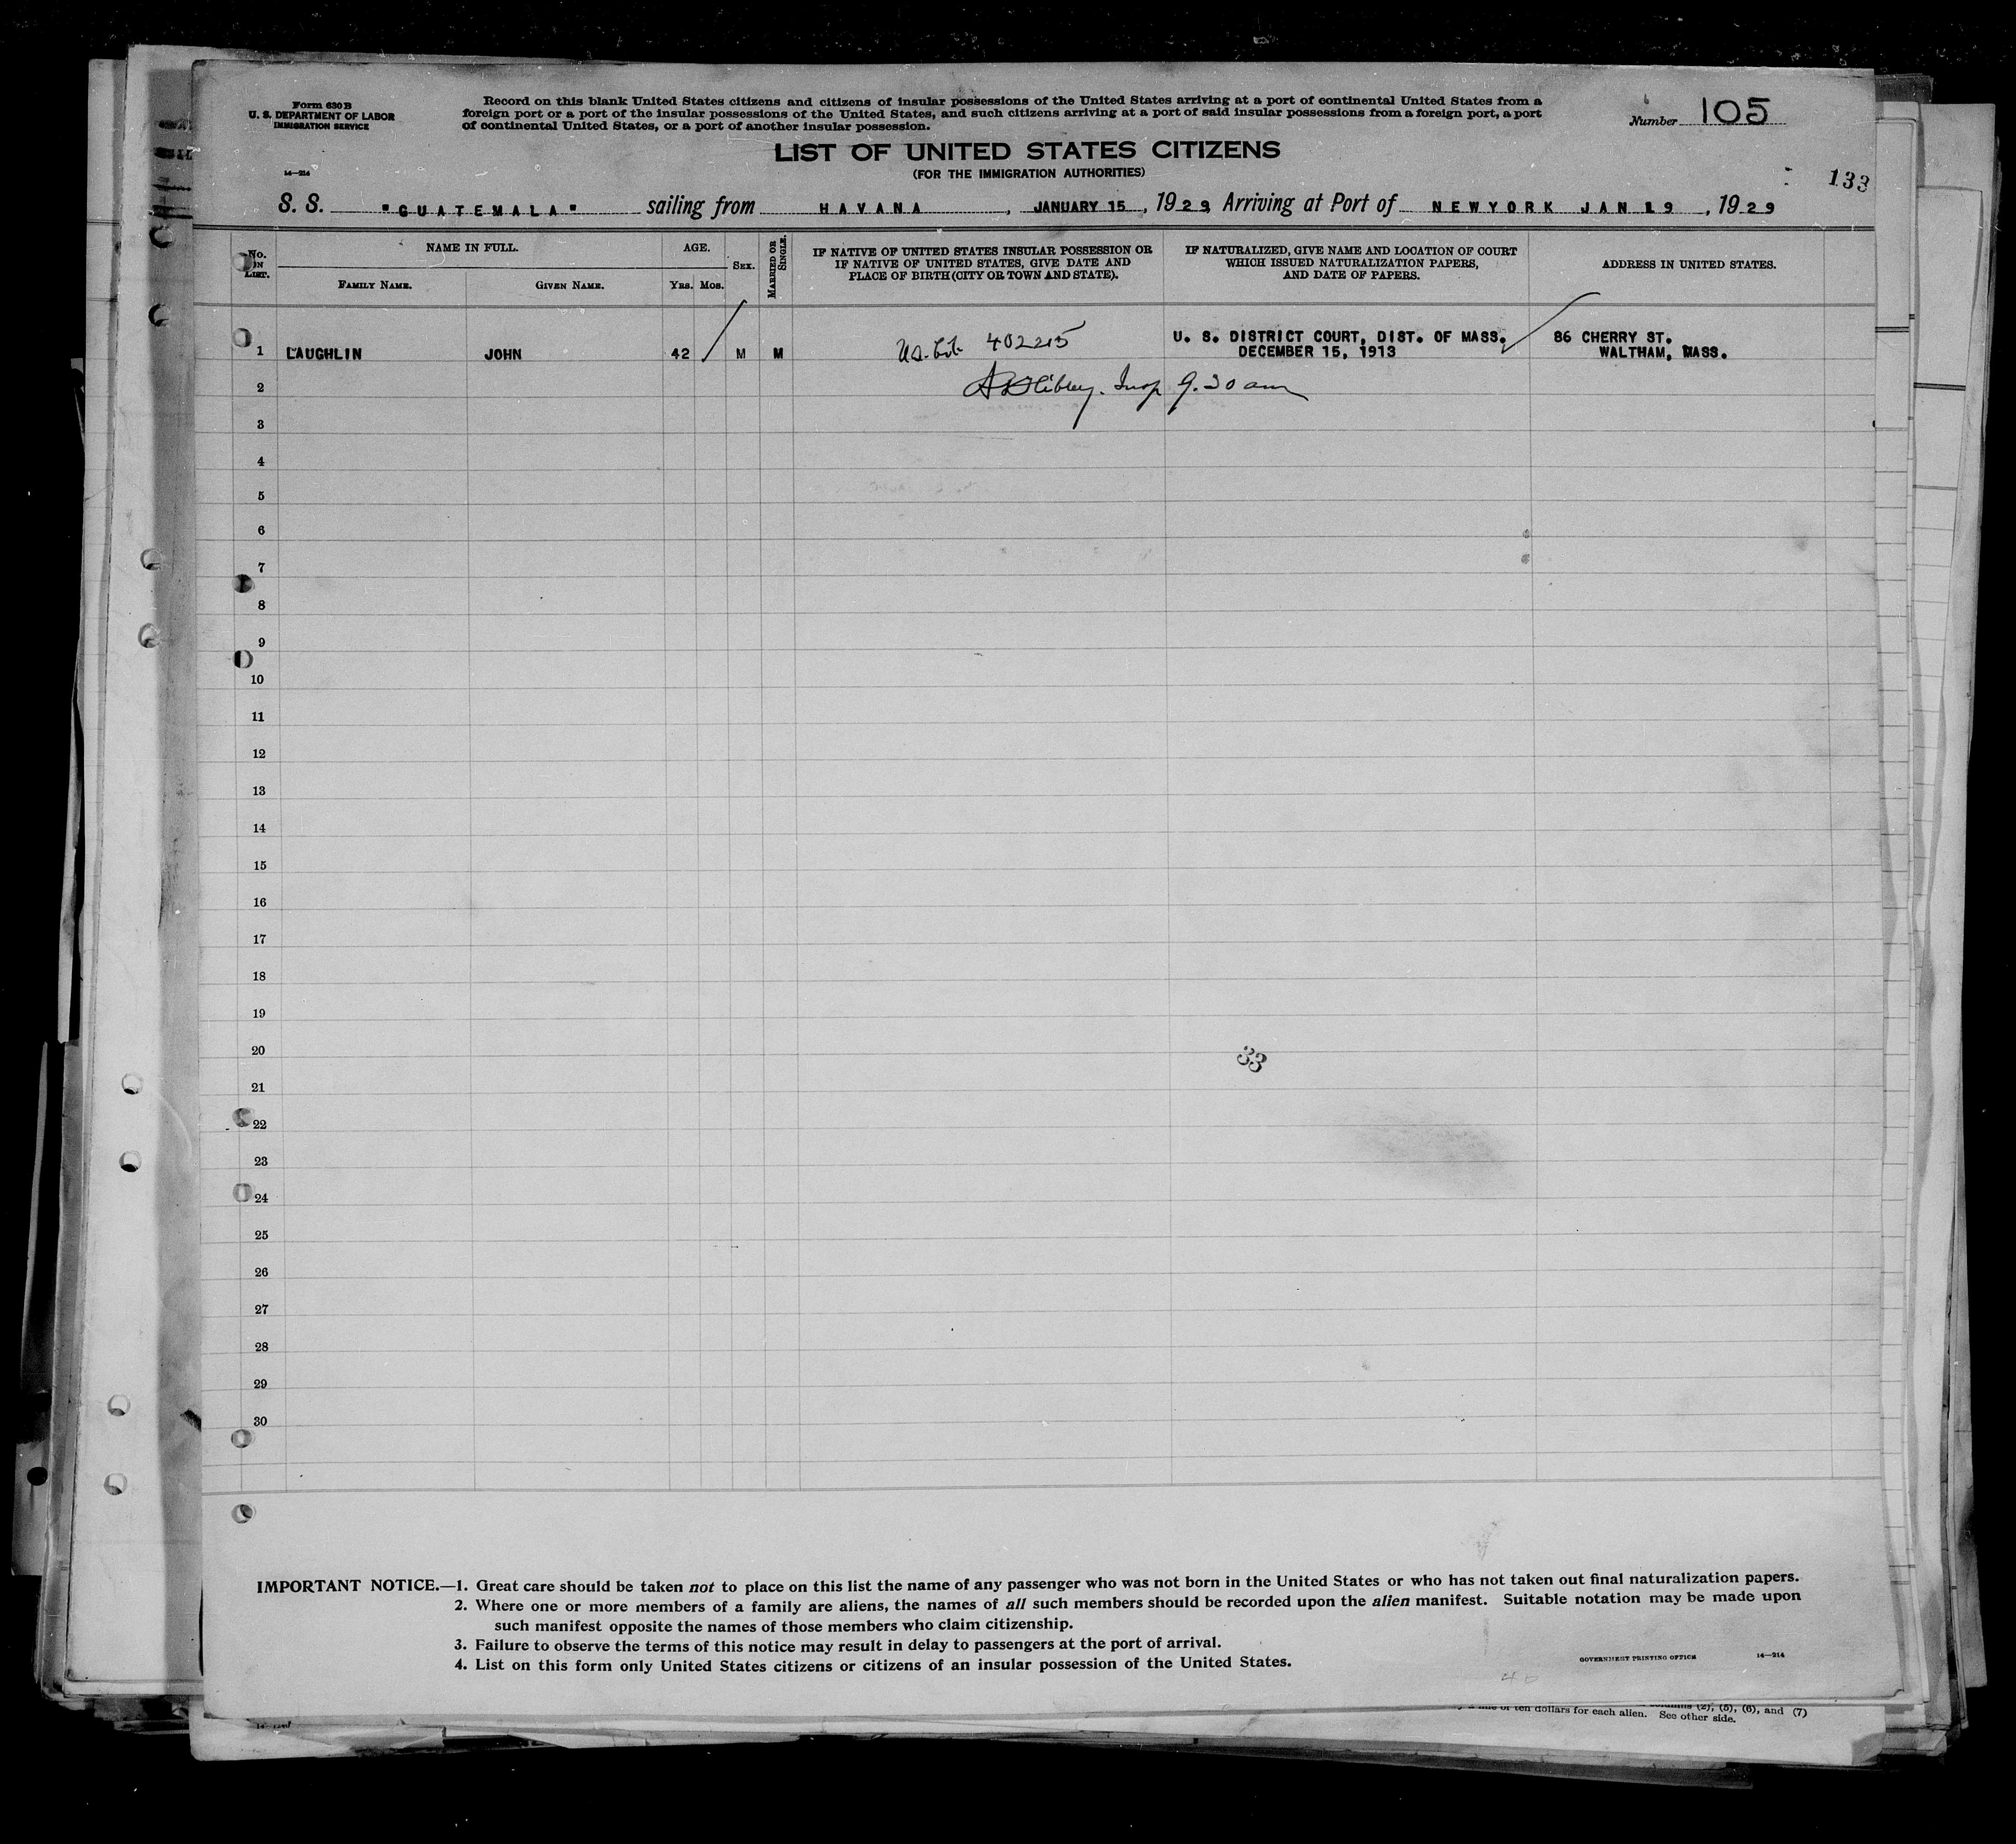 Form 630 B
U. S. DEPARTMENT OF LABOR
IMMIGRATION SERVICE
14—214
Record on this blank United States citizens and citizens of insular possessions of the United States arriving at a port of continental United States from a
foreign port or a port of the insular possessions of the United States, and such citizens arriving at a port of said insular possessions from a foreign port, a port
of continental United States, or a port of another insular possession.
Number 105
LIST OF UNITED STATES CITIZENS
(FOR THE IMMIGRATION AUTHORITIES)
133
S. S. "GUATEMALA" sailing from HAVANA, JANUARY 15, 1929, Arriving at Port of NEWYORK JAN 19, 1929
No. IN LIST.
NAME IN FULL.
FAMILY NAME.
GIVEN NAME.
AGE.
YRS. MOS.
SEX.
MARRIED OR SINGLE.
IF NATIVE OF UNITED STATES INSULAR POSSESSION OR
IF NATIVE OF UNITED STATES, GIVE DATE AND
PLACE OF BIRTH (CITY OR TOWN AND STATE).
IF NATURALIZED, GIVE NAME AND LOCATION OF COURT
WHICH ISSUED NATURALIZATION PAPERS,
AND DATE OF PAPERS.
ADDRESS IN UNITED STATES.
1 LAUGHLIN JOHN 42 M M 402215 U. S. DISTRICT COURT, DIST. OF MASS. 86 CHERRY ST.
DECEMBER 15, 1913 WALTHAM, MASS.
2 Insp 9.30 am
3
4
5
6
7
8
9
10
11
12
13
14
15
16
17
18
19
20
33
21
22
23
24
25
26
27
28
29
30
IMPORTANT NOTICE.—1. Great care should be taken not to place on this list the name of any passenger who was not born in the United States or who has not taken out final naturalization papers.
2. Where one or more members of a family are aliens, the names of all such members should be recorded upon the alien manifest. Suitable notation may be made upon
such manifest opposite the names of those members who claim citizenship.
3. Failure to observe the terms of this notice may result in delay to passengers at the port of arrival.
4. List on this form only United States citizens or citizens of an insular possession of the United States.
GOVERNMENT PRINTING OFFICE 14—214
(2), (5), (6), and (7)
of ten dollars for each alien. See other side.